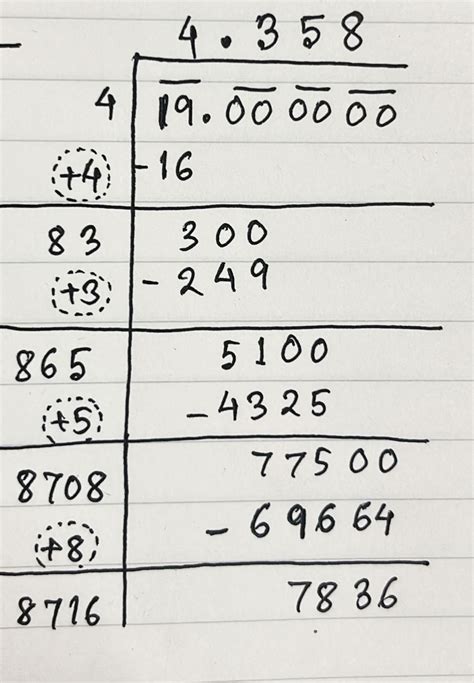 4.358
4 19.00 00 00
+4 -16
83 300
+3 -249
865 5100
+5 -4325
8708 77500
+8 -69664
8716 7836